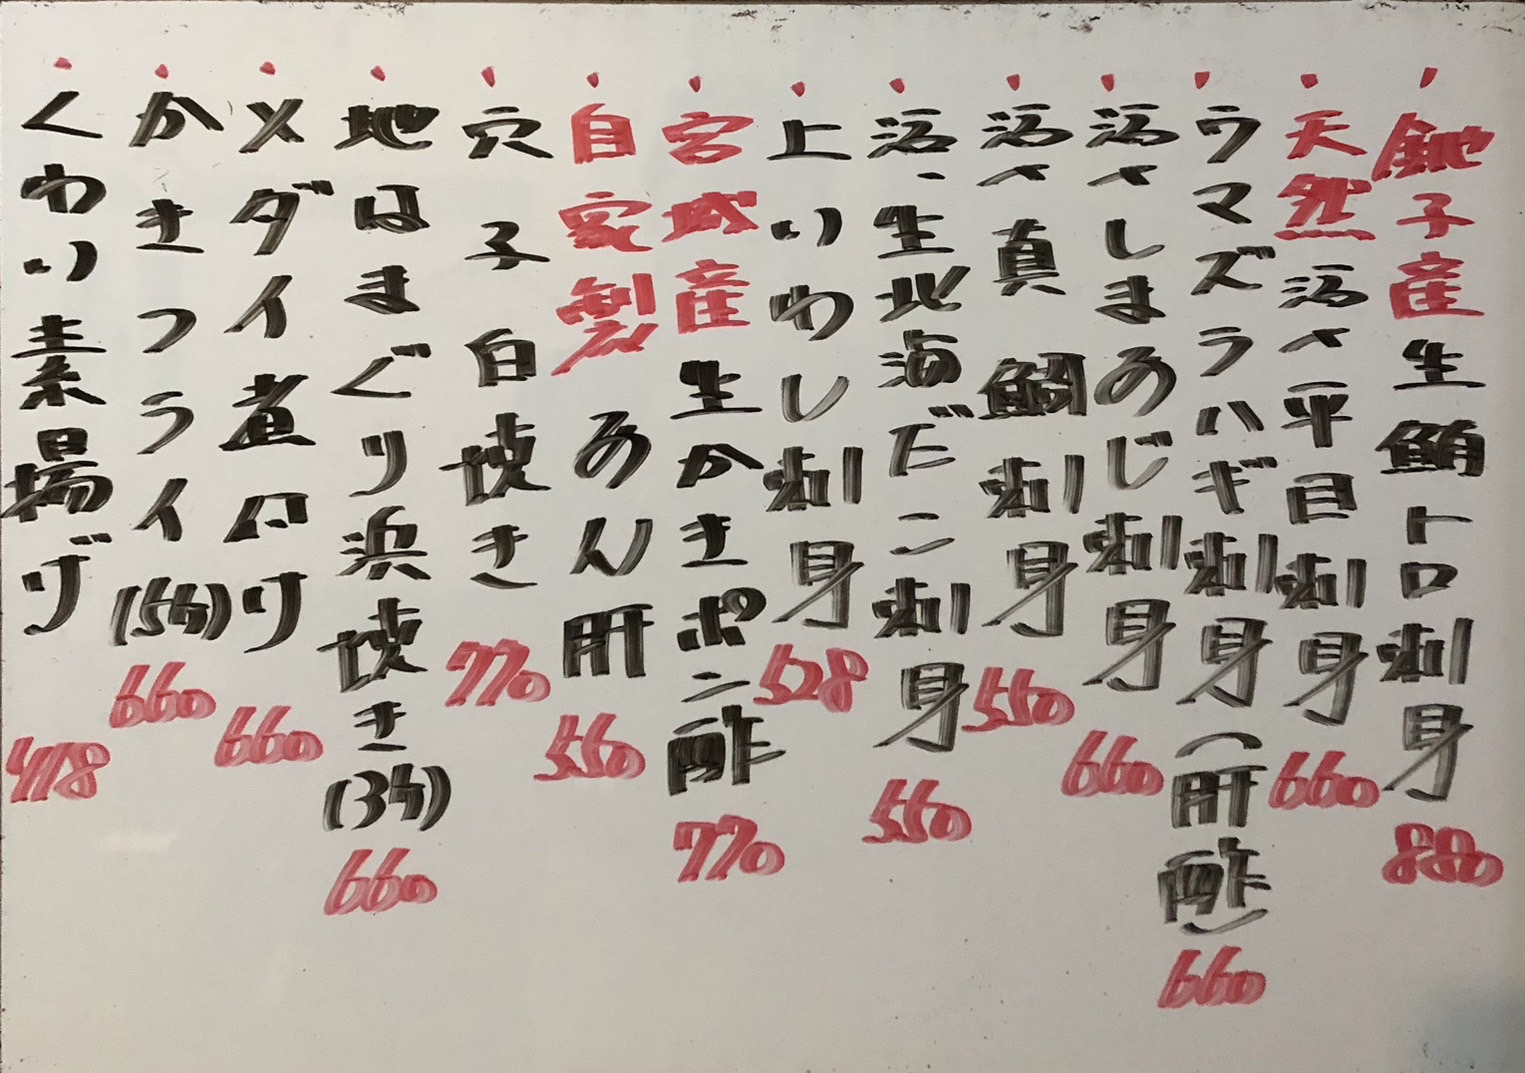 銚子産生鮪トロ刺身 880
天然活〆平目刺身 660
ウマズラハギ刺身(肝酢) 660
活〆しまあじ刺身 660
活〆真鯛刺身 550
活、生北海だこ刺身 550
上いわし刺身 528
宮城産生かきポン酢 770
自家製あん肝 550
穴子白焼き 770
地はまぐり浜焼き(3ケ) 660
メダイ煮付け 660
かきフライ(5ケ) 660
くわい素揚げ 418